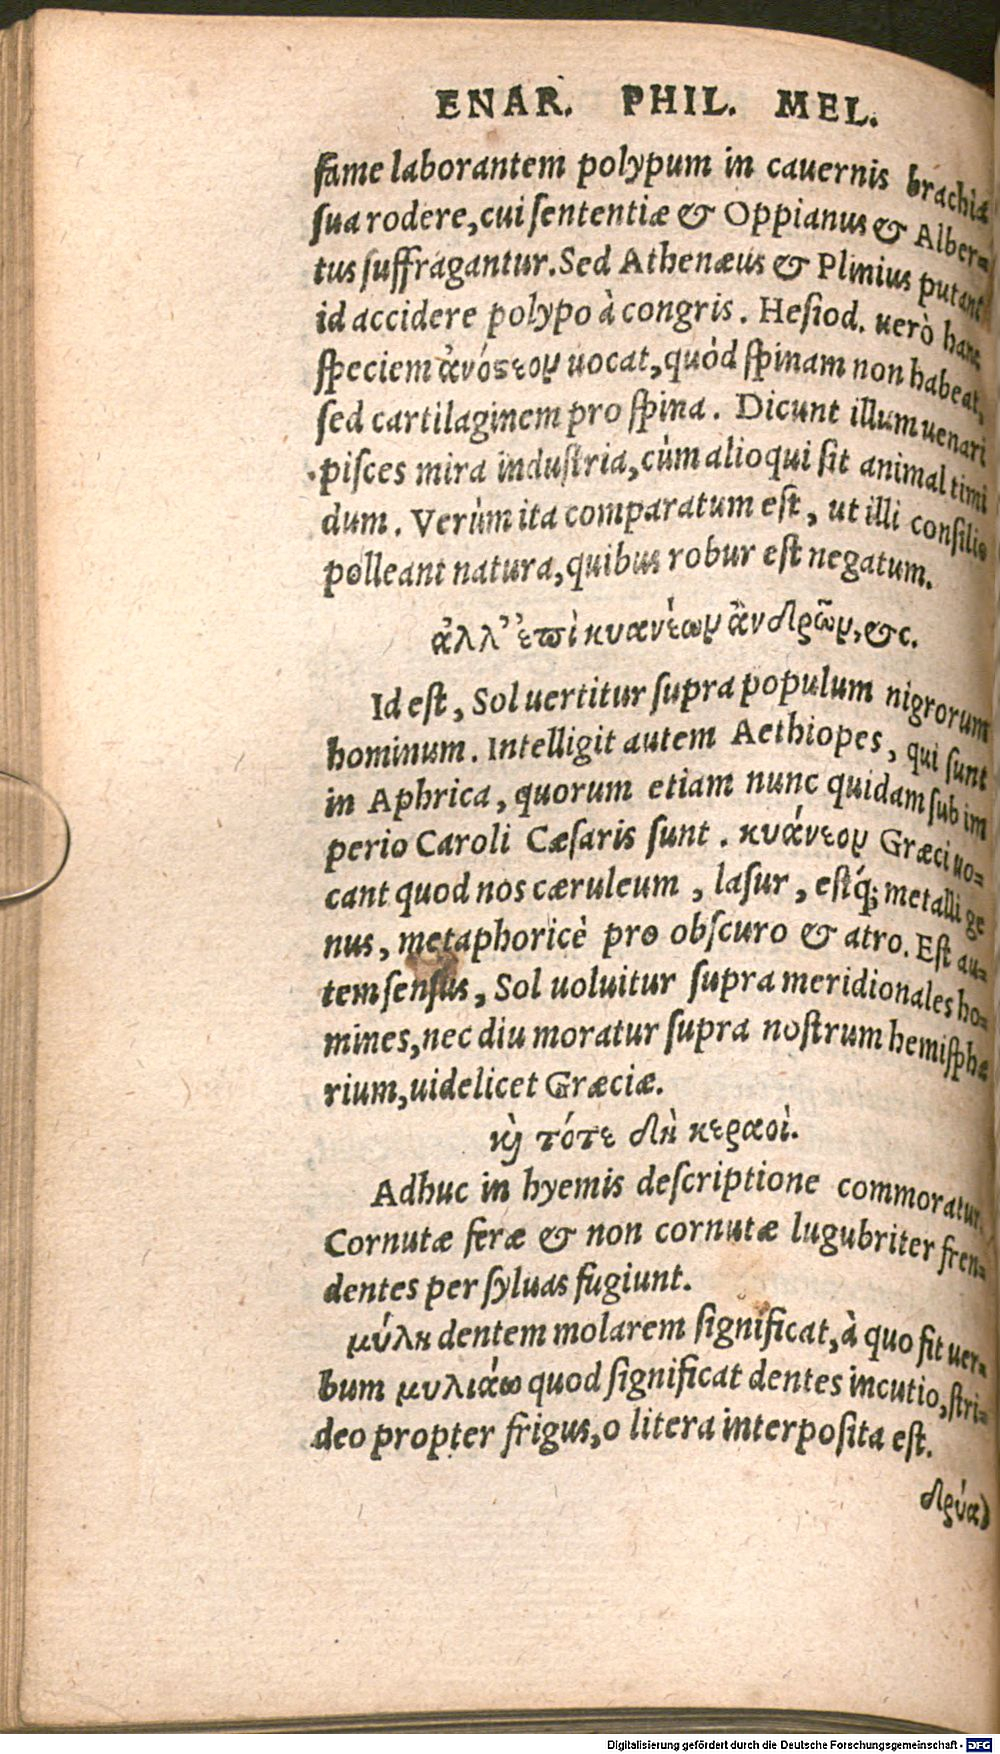 ENAR. PHIL. MEL.
fame laborantem polypum in cauernis brachia
sua rodere, cui sententiæ & Oppianus & Alber-
tus suffragantur. Sed Athenæus & Plinius putant
id accidere polypo à congris. Hesiod. uerò hanc
speciem ἀνόστεον uocat, quód spinam non habeat,
sed cartilaginem pro spina. Dicunt illum uenari
pisces mira industria, cùm alioqui sit animal timi
dum. Verùm ita comparatum est, ut illi consilio
polleant natura, quibus robur est negatum.
ἀλλ' ἐπὶ κυανέων ἀνδρῶν, &c.
Id est, Sol uertitur supra populum nigrorum
hominum. Intelligit autem Aethiopes, qui sunt
in Aphrica, quorum etiam nunc quidam sub im
perio Caroli Cæsaris sunt. κυάνεον Græci uo-
cant quod nos cæruleum, lasur, estq́; metalli ge
nus, metaphoricè pro obscuro & atro. Est au-
tem sensus, Sol uoluitur supra meridionales ho-
mines, nec diu moratur supra nostrum hemisphæ
rium, uidelicet Græciæ.
καὶ τότε δὴ κεραοὶ.
Adhuc in hyemis descriptione commoratur.
Cornutæ feræ & non cornutæ lugubriter fren-
dentes per syluas fugiunt.
μύλη dentem molarem significat, à quo fit uer-
bum μυλιάω quod significat dentes incutio, stri-
deo propter frigus, o litera interposita est.
δρύα)
Digitalisierung gefördert durch die Deutsche Forschungsgemeinschaft - DFG